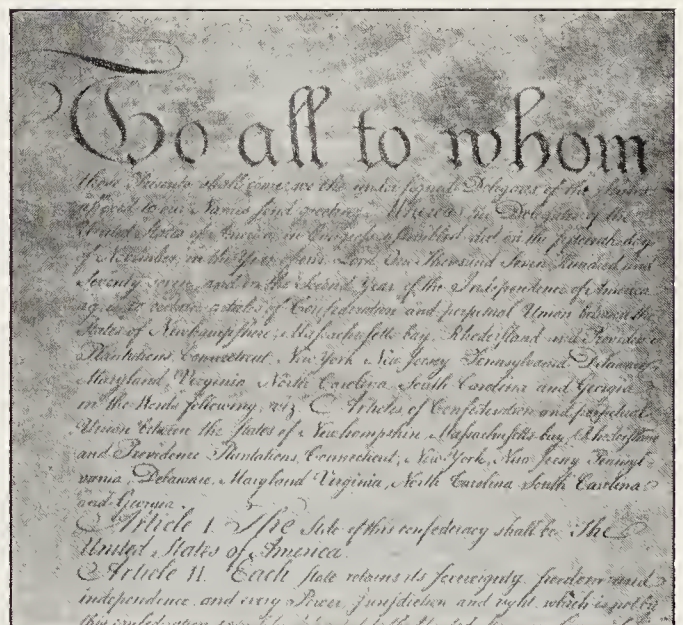 To all to whom
these Presents shall come, we the under signed Delegates of the States
affixed to our Names send greeting. Whereas the Delegates of the
United States of America in Congress assembled did on the fifteenth day
of November in the Year of our Lord One Thousand Seven Hundred and
Seventy seven, and in the Second Year of the Independence of America
agree to certain articles of Confederation and perpetual Union between the
States of Newhampshire, Massachusetts bay, Rhodeisland and Providence
Plantations, Connecticut, New York, New Jersey, Pennsylvania, Delaware,
Maryland, Virginia, North Carolina, South Carolina and Georgia
in the Words following, viz. Articles of Confederation and perpetual
Union between the States of Newhampshire, Massachusetts bay, Rhodeisland
and Providence Plantations, Connecticut, New York, New Jersey, Pennsyl
vania, Delaware, Maryland, Virginia, North Carolina, South Carolina
and Georgia.
Article I. The Stile of this confederacy shall be "The
United States of America."
Article II. Each state retains its sovereignty, freedom and
independence, and every Power, Jurisdiction and right, which is not by
this confederation